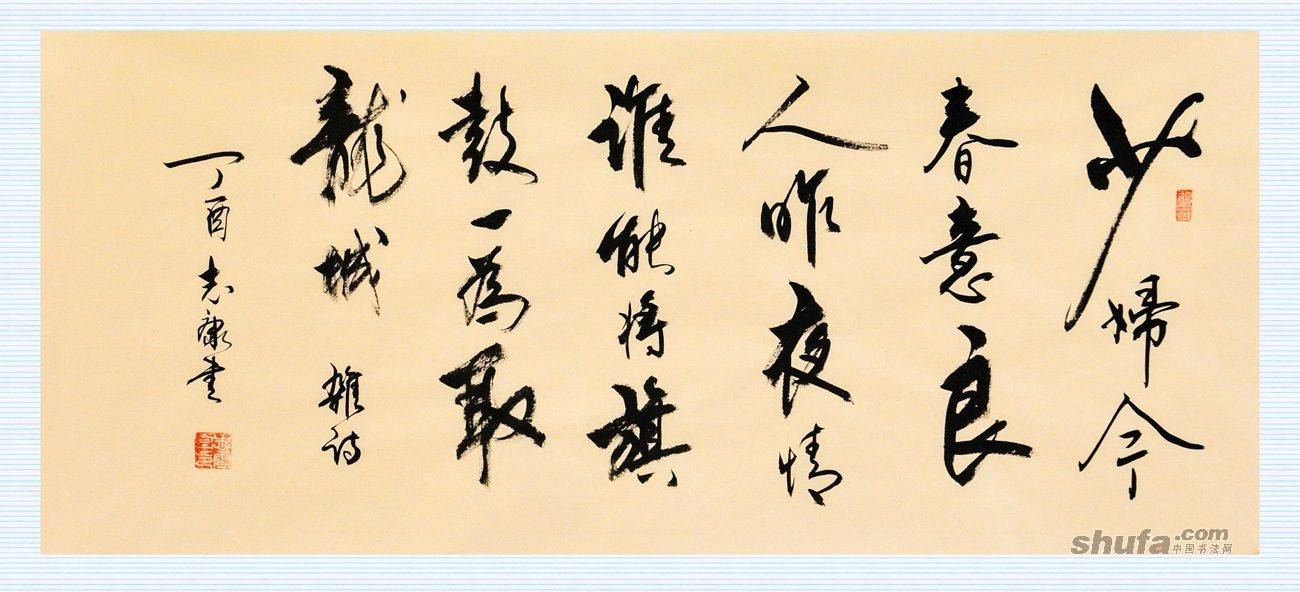 少婦今
春意良
人昨夜情
誰能将旗
鼓一為取
龍城 雜詩
丁酉志康書
shufa.com
中国书法网